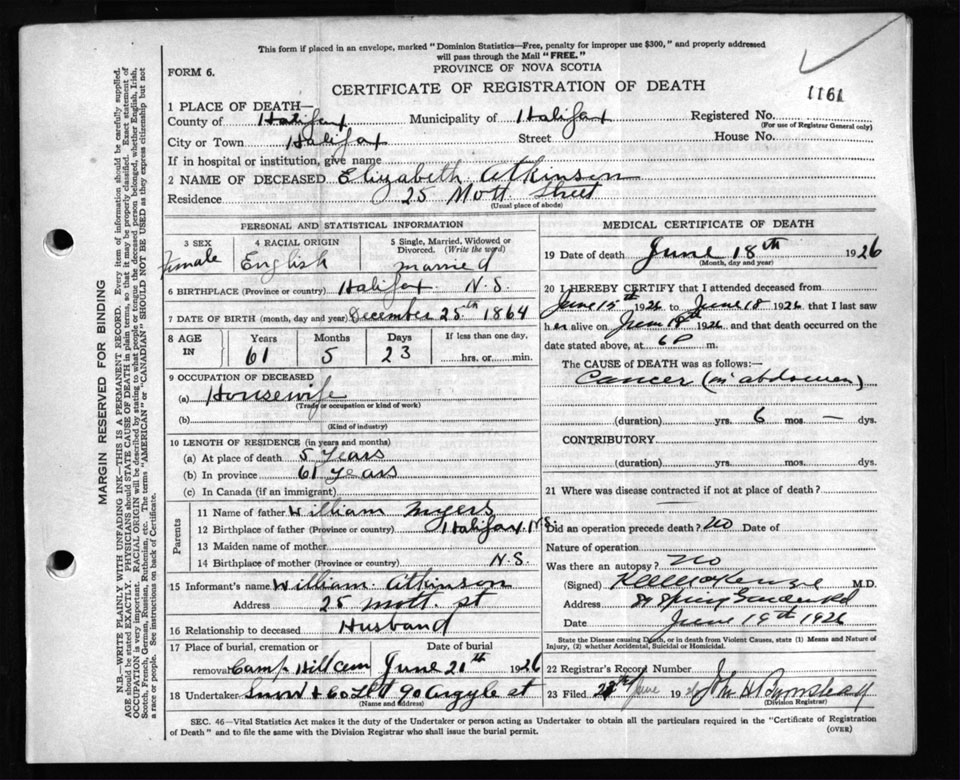 This form if placed in an envelope, marked "Dominion Statistics—Free, penalty for improper use $300," and properly addressed
will pass through the Mail "FREE."
PROVINCE OF NOVA SCOTIA
FORM 6.
CERTIFICATE OF REGISTRATION OF DEATH
1161
1 PLACE OF DEATH—
County of Halifax Municipality of Halifax Registered No.
(For use of Registrar General only)
City or Town Halifax Street House No.
If in hospital or institution, give name
2 NAME OF DECEASED Elizabeth Atkinson
Residence 25 Mott Street
(Usual place of abode)
PERSONAL AND STATISTICAL INFORMATION
3 SEX 4 RACIAL ORIGIN 5 Single, Married, Widowed or
Divorced. (Write the word)
Female English married
6 BIRTHPLACE (Province or country) Halifax N.S.
7 DATE OF BIRTH (month, day and year) December 25th 1864
8 AGE IN Years Months Days If less than one day,
61 5 23 hrs. or min.
9 OCCUPATION OF DECEASED
(a) Housewife
(Trade or occupation or kind of work)
(b)
(Kind of industry)
10 LENGTH OF RESIDENCE (in years and months)
(a) At place of death 5 Years
(b) In province 61 years
(c) In Canada (if an immigrant)
Parents
11 Name of father William Myers
12 Birthplace of father (Province or country) Halifax, N.S.
13 Maiden name of mother
14 Birthplace of mother (Province or country) N.S.
15 Informant's name William Atkinson
Address 25 Mott. st
16 Relationship to deceased Husband
17 Place of burial, cremation or Date of burial
removal Camp Hill Cem June 21th 1926
18 Undertaker Snow & Co Ltd 90 Argyle st
(Name and address)
MEDICAL CERTIFICATE OF DEATH
19 Date of death June 18th 1926
(Month, day and year)
20 I HEREBY CERTIFY that I attended deceased from
June 15th 1926 to June 18 1926 that I last saw
her alive on June 1926, and that death occurred on
date stated above, at 6 P m.
The CAUSE of DEATH was as follows:—
Cancer (in abdomen)
(duration) yrs. 6 mos — dys.
CONTRIBUTORY
(duration) yrs. mos. dys.
21 Where was disease contracted if not at place of death?
Did an operation precede death? no Date of
Nature of operation
Was there an autopsy? no
(Signed) MacKenzie M.D.
Address Spring Garden Rd
Date June 19th 1926
State the Disease causing Death, or in death from Violent Causes, state (1) Means and Nature of
Injury, (2) whether Accidental, Suicidal or Homicidal.
22 Registrar's Record Number
23 Filed June 19 John H Barnstead
(Division Registrar)
SEC. 46—Vital Statistics Act makes it the duty of the Undertaker or person acting as Undertaker to obtain all the particulars required in the "Certificate of Registration
of Death" and to file the same with the Division Registrar who shall issue the burial permit.
(OVER)
MARGIN RESERVED FOR BINDING
N.B.—WRITE PLAINLY WITH UNFADING INK—THIS IS A PERMANENT RECORD. Every item of information should be carefully supplied.
AGE should be stated EXACTLY. PHYSICIANS should STATE CAUSE OF DEATH in plain terms, so that it may be properly classified. Exact statement of
OCCUPATION is very important. RACIAL ORIGIN will be described by stating to what people or tongue the deceased person belonged, whether English, Irish,
Scotch, French, German, Russian, Ruthenian, etc. The terms "AMERICAN" or "CANADIAN" SHOULD NOT BE USED as they express citizenship but not
a race or people. See instructions on back of Certificate.